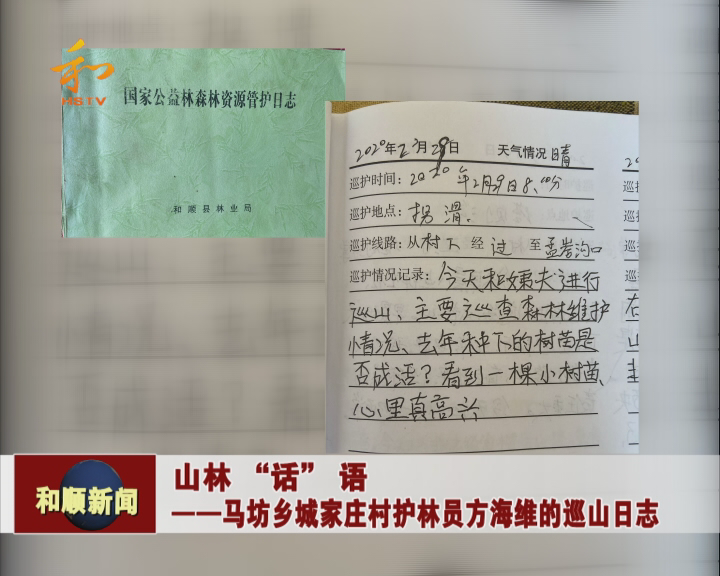 和
HSTV
国家公益林森林资源管护日志
和顺县林业局
2020年2月29日 天气情况 晴
巡护时间：2020年2月29日8:00分
巡护地点：拐滑.
巡护线路：从村下 经过 至孟岩沟口
巡护情况记录：今天和姨夫进行
巡山、主要巡查森林维护
情况、去年种下的树苗是
否成活？看到一棵小树苗、
心里真高兴
和顺新闻
山林“话”语
——马坊乡城家庄村护林员方海维的巡山日志